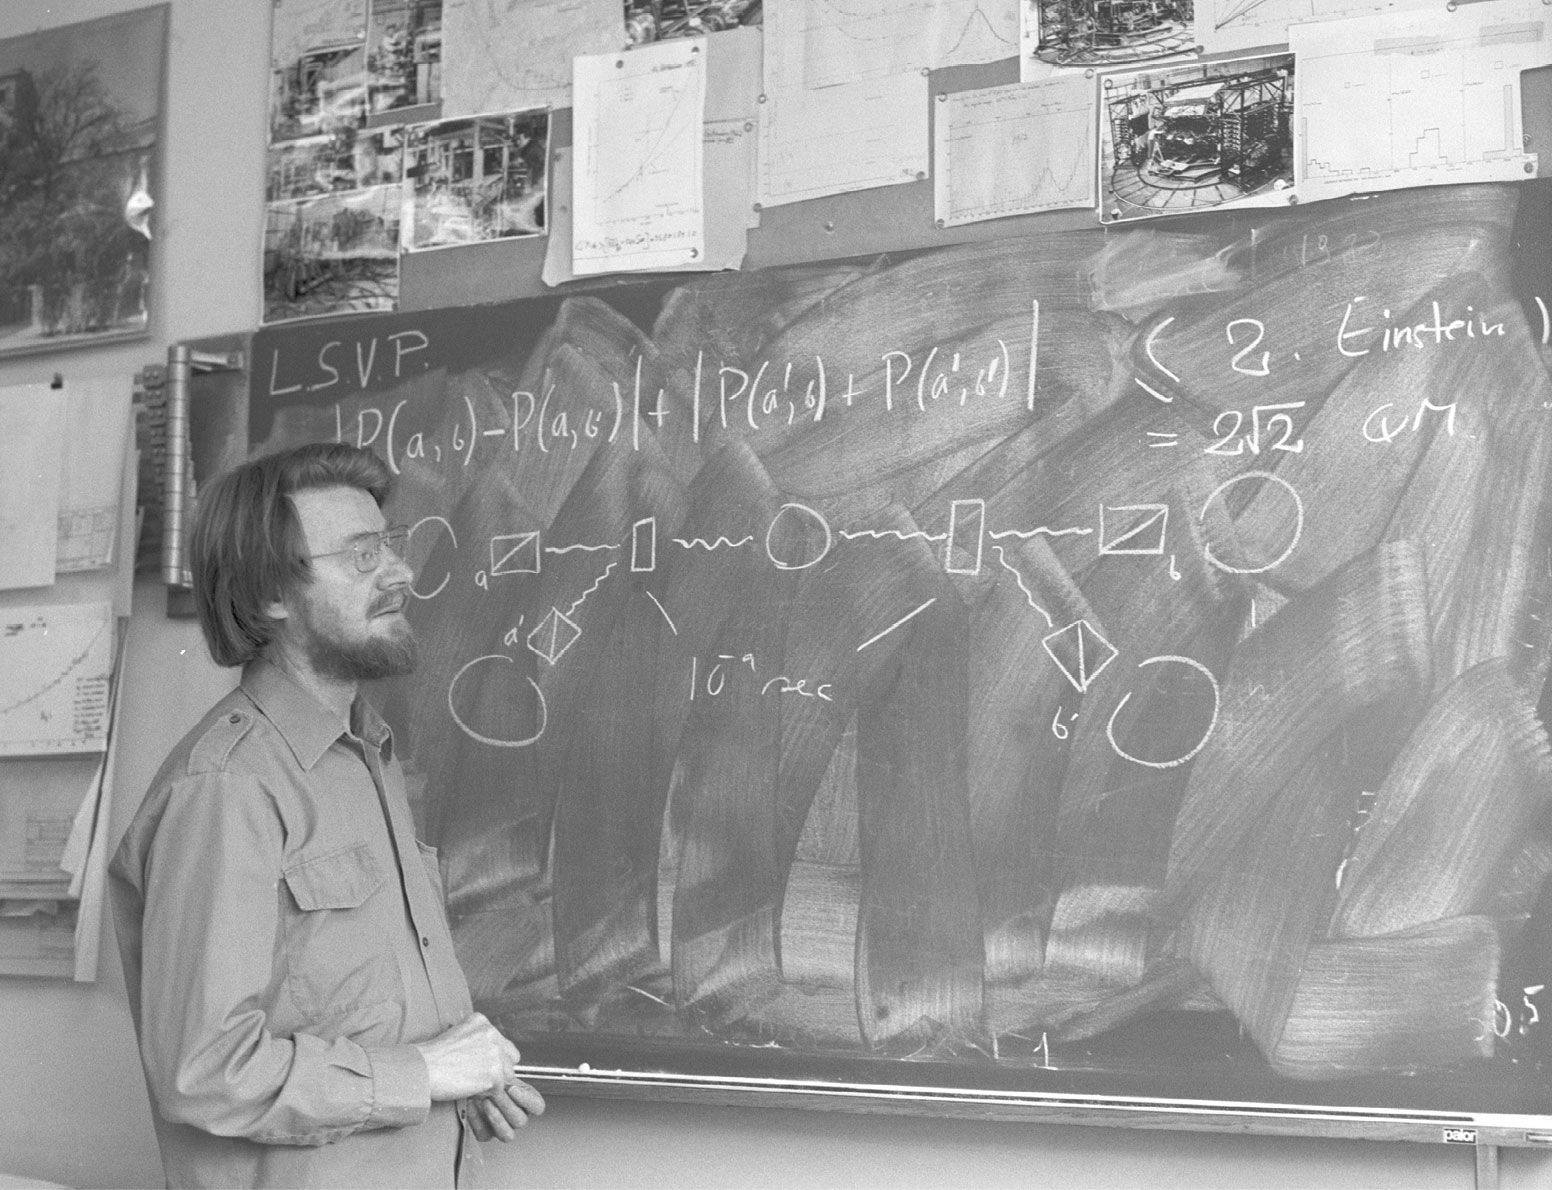 L.S.V.P.
|P(a, b) – P(a, b')| + |P(a', b) + P(a', b')| ⟨ 2. Einstein)
= 2√2 QM
a
b
a'
10⁻⁹ sec
b'
1
0.5
palor